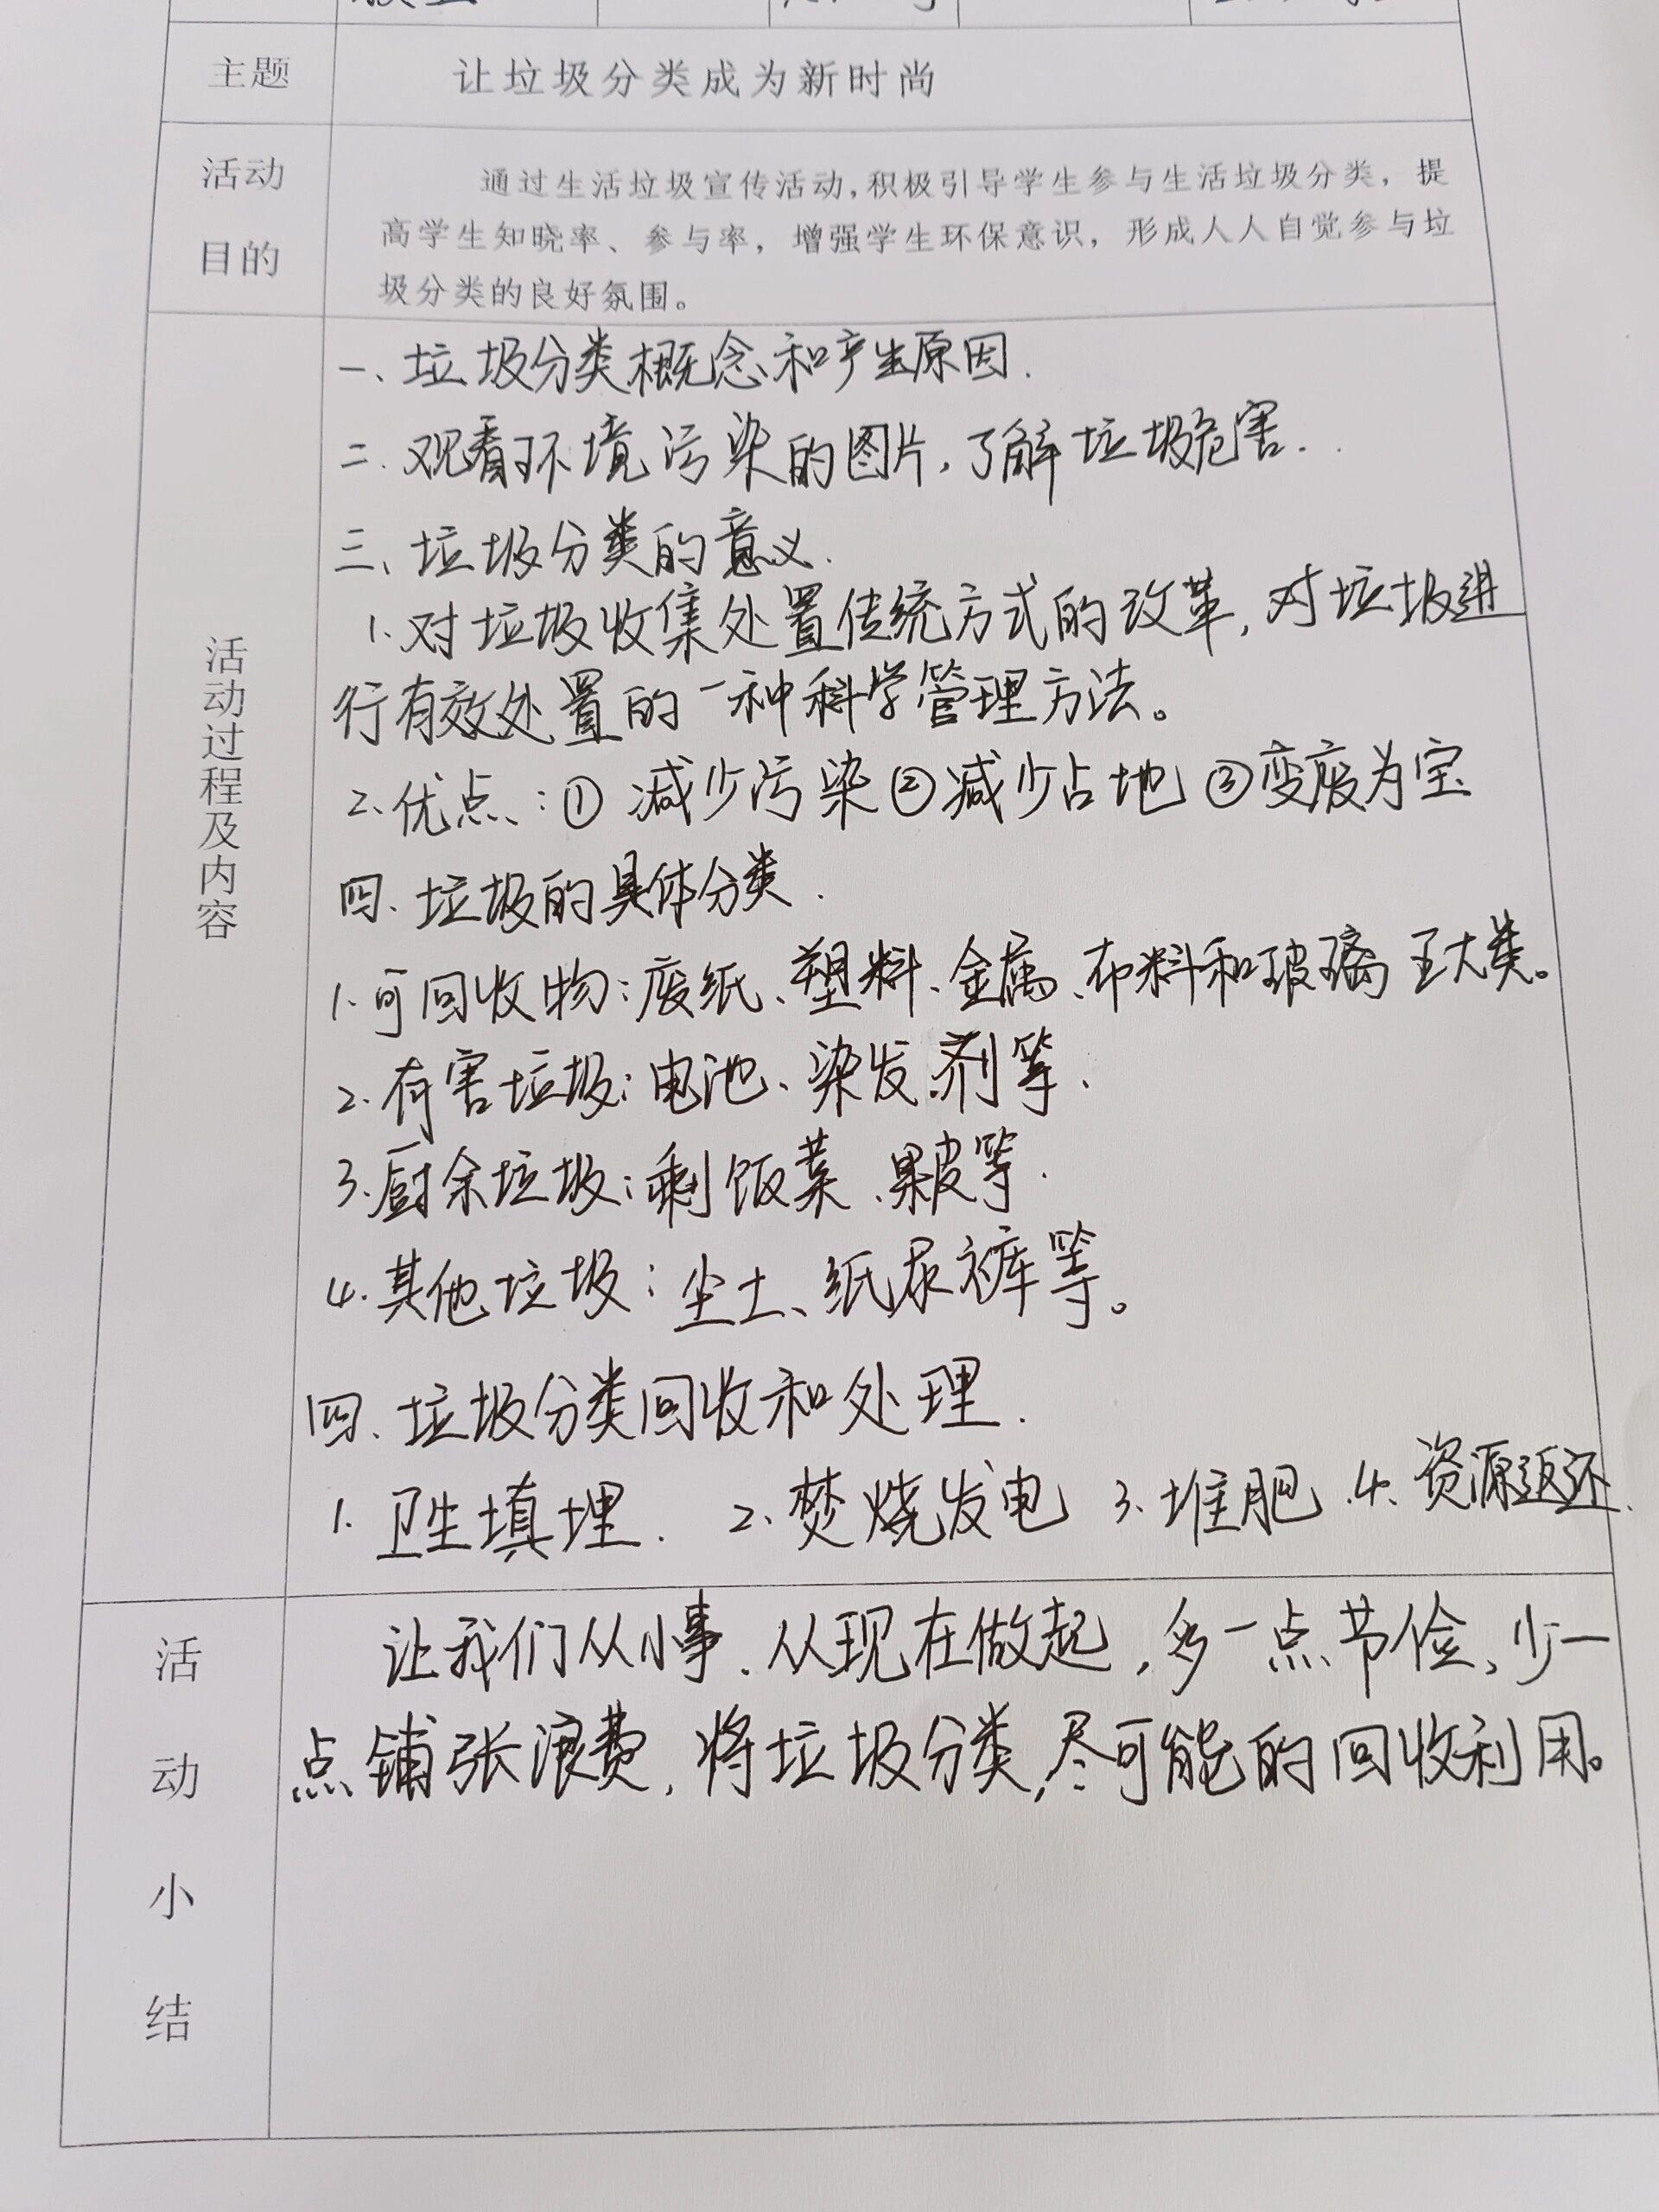 主题
让垃圾分类成为新时尚
活动
目的
通过生活垃圾宣传活动,积极引导学生参与生活垃圾分类，提
高学生知晓率、参与率，增强学生环保意识，形成人人自觉参与垃
圾分类的良好氛围。
活动过程及内容
一、垃圾分类概念和产生原因.
二.观看环境污染的图片,了解垃圾危害.
三、垃圾分类的意义.
1.对垃圾收集处置传统方式的改革,对垃圾进
行有效处置的一种科学管理方法。
2.优点:①减少污染②减少占地③变废为宝
四.垃圾的具体分类.
1.可回收物:废纸、塑料、金属、布料和玻璃 五大类。
2.有害垃圾:电池、染发剂等.
3.厨余垃圾:剩饭菜、果皮等.
4.其他垃圾:尘土、纸尿裤等。
四、垃圾分类回收和处理.
1.卫生填埋. 2.焚烧发电 3.堆肥 4.资源返还.
活动小结
让我们从小事、从现在做起,多一点节俭,少一
点铺张浪费,将垃圾分类,尽可能的回收利用。